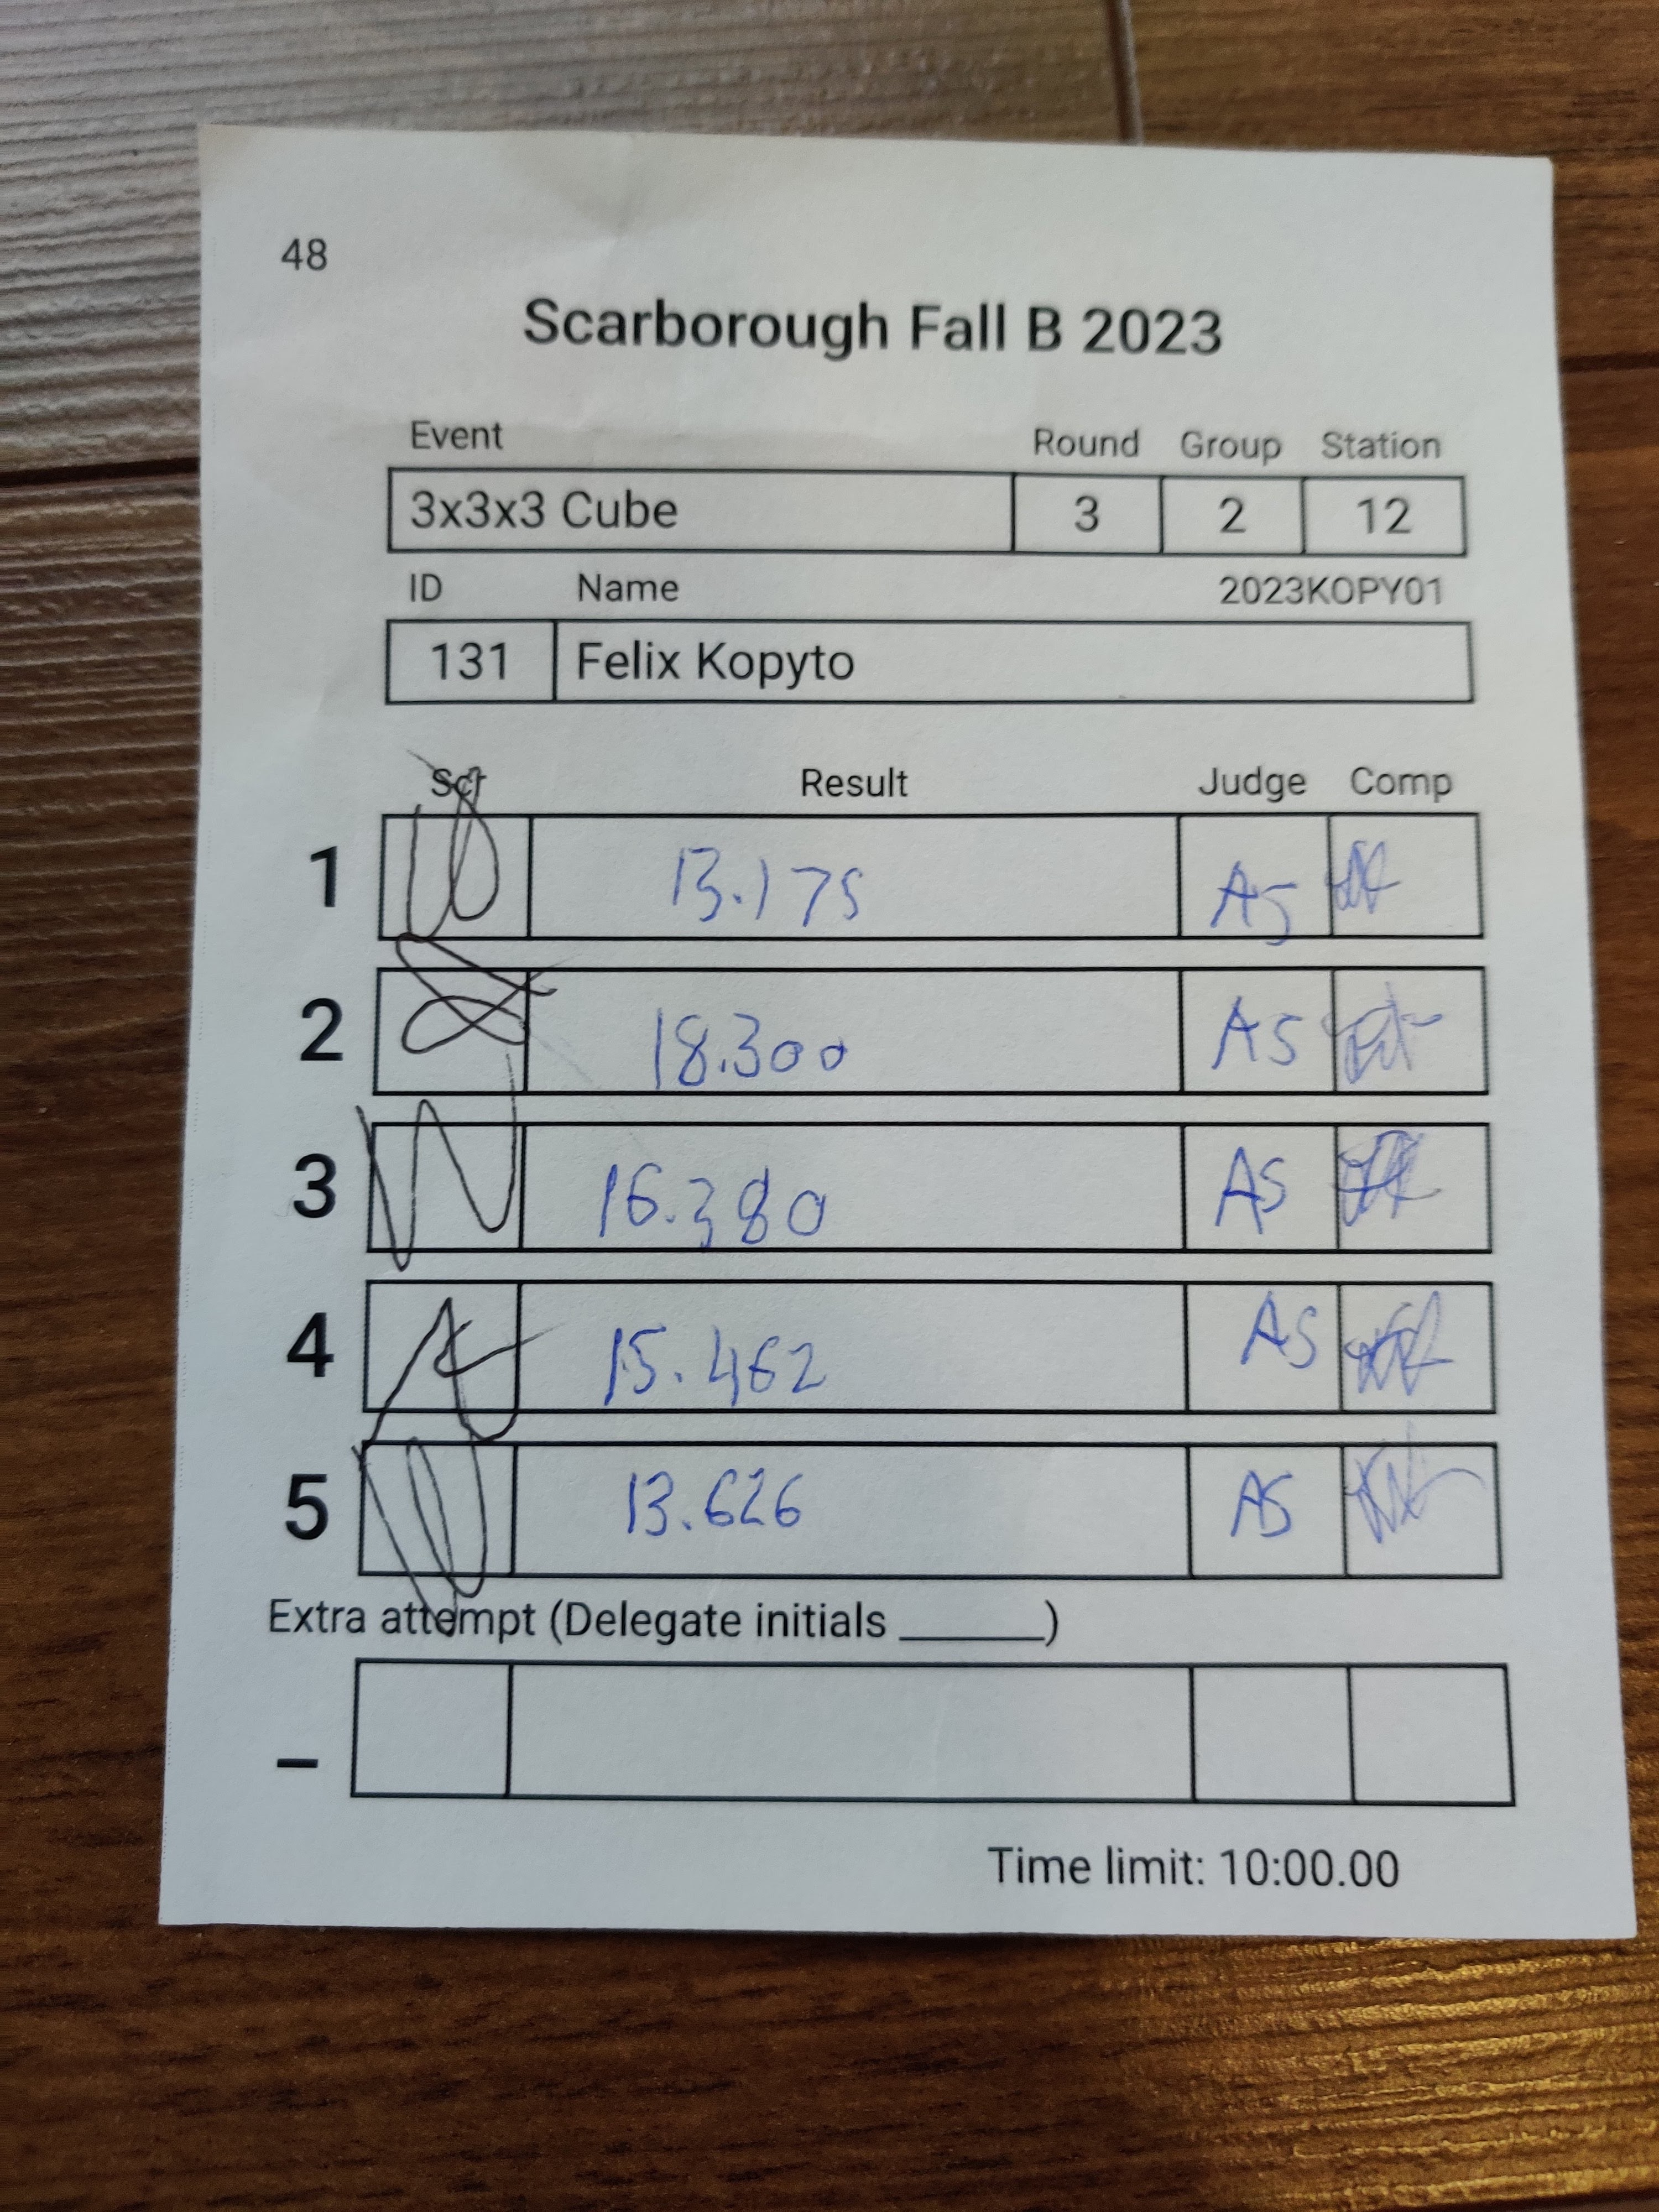 48
Scarborough Fall B 2023
Event Round Group Station
3x3x3 Cube 3 2 12
ID Name 2023KOPY01
131 Felix Kopyto
Scr Result Judge Comp
1 13.175 AS
2 18.300 AS
3 16.380 AS
4 15.462 AS
5 13.626 AS
Extra attempt (Delegate initials ______)
–
Time limit: 10:00.00